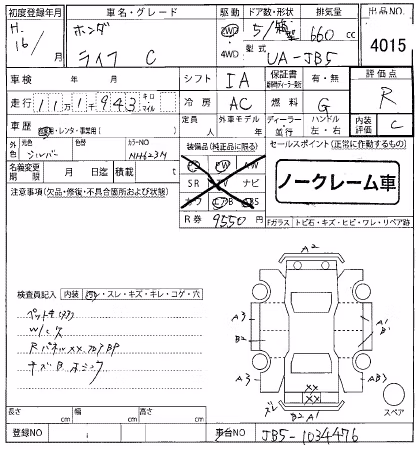 初度登録年月 車名・グレード 駆動 ドア数・形状 排気量 出品NO.
H. 16/ 月 ホンダ ライフ C 2WD 4WD 5/ 型 660 cc 4015
型式 UA-JB5
車検 年 月 シフト IA 保証書 有・無 評価点
走行 11万1千943 キロ マイル 冷房 AC 燃料 G R
車歴 自家・レンタ・事業用( ) 定員 人 外車モデル 年 ディーラー 並行 ハンドル 左・右 内装評価 C
外色 元色 シルバー 色 カラーNO NH623M 装備品(純正品に限る) セールスポイント(正常に作動するもの)
名義変更期限 月 日迄 積載 t PS PW AW
注意事項(欠品・修復・不具合箇所および状態) SR TV ナビ ノークレーム車
カワ エアB ABS
R券 9550円 Fガラス トビ石・キズ・ヒビ・ワレ・リペア跡
A2
検査員記入 内装 汚レ・スレ・キズ・キレ・コゲ・穴
A3 A1
B1
B2
RパネルXX フロアBP
A3 AB3
XX
XX
ズレ B2 A1 スペア
長さ cm 幅 cm 高さ cm
登録NO 車台NO JB5-1034476